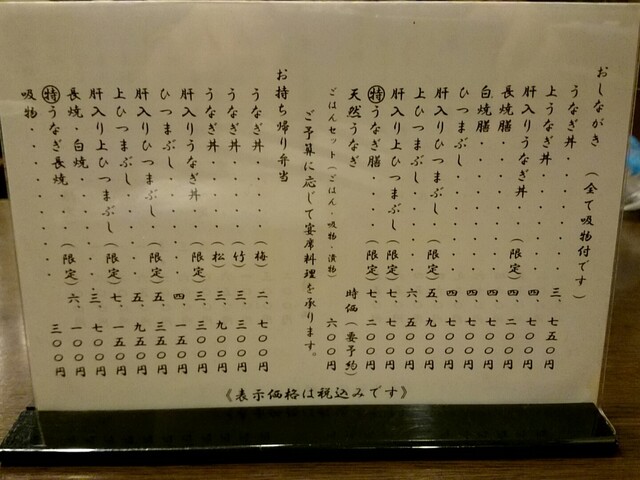 おしながき (全て吸物付です)
うなぎ丼・・・・・・三、七五〇円
上うなぎ丼・・・・・四、七〇〇円
肝入りうなぎ丼・・(限定)四、二〇〇円
長焼膳・・・・・・・四、七〇〇円
白焼膳・・・・・・・四、七〇〇円
ひつまぶし・・・・・四、七〇〇円
肝入りひつまぶし・(限定)五、九〇〇円
上ひつまぶし・・・・六、七〇〇円
肝入り上ひつまぶし(限定)七、七〇〇円
㊕うなぎ膳・・・・(限定)七、二〇〇円
天然うなぎ 時価(要予約)
ごはんセット(ごはん・吸物・漬物) 六〇〇円
ご予算に応じて宴席料理を承ります。
お持ち帰り弁当
うなぎ丼・・・・(梅)二、七〇〇円
うなぎ丼・・・・(竹)三、三〇〇円
うなぎ丼・・・・(松)三、九〇〇円
肝入りうなぎ丼・・(限定)三、三〇〇円
ひつまぶし・・・・・四、一五〇円
肝入りひつまぶし・(限定)五、三五〇円
上ひつまぶし・・・・五、九五〇円
肝入り上ひつまぶし(限定)七、一五〇円
長焼・白焼・・・・・三、七〇〇円
㊕うなぎ長焼・・・(限定)六、一〇〇円
吸物・・・・・・・・三〇〇円
《表示価格は税込みです》